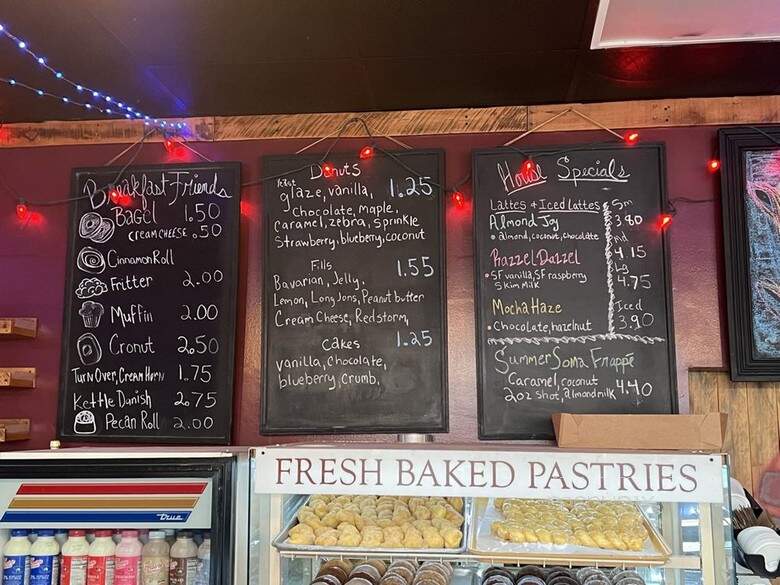 Breakfast Friends
Bagel 1.50
CREAM CHEESE .50
Cinnamon Roll
Fritter 2.00
Muffin 2.00
Cronut 2.50
Turn Over, Cream Horn 1.75
Kettle Danish 2.75
Pecan Roll 2.00
Donuts
glaze, vanilla, 1.25
chocolate, maple,
caramel, zebra, sprinkle
Strawberry, blueberry, coconut
Fills 1.55
Bavarian, Jelly,
Lemon, Long Jons, Peanut butter
Cream Cheese, Redstorm,
Cakes 1.25
vanilla, chocolate,
blueberry, crumb,
House Specials
Lattes + Iced lattes Sm
Almond Joy 3.80
• almond, coconut, chocolate Md
Razzel Dazzel 4.15
• SF vanilla, SF raspberry Lg
Skim Milk 4.75
Mocha Haze Iced
• Chocolate, hazelnut 3.90
Summer Soma Frappé
Caramel, coconut 4.40
2oz shot, almond milk
FRESH BAKED PASTRIES
True